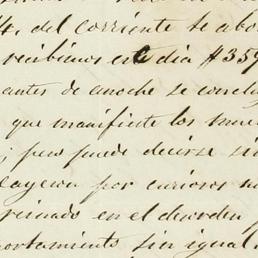 4, del corriente te abo
recibimos este dia $359
antes de anoche se conclu
que manifieste los mue
; pero puede decirse sin
layeron por curiosos
reinado en el desorden
portamiento sin igual.